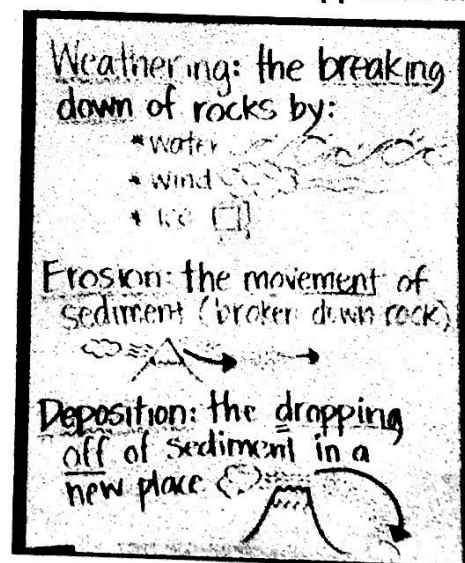 Weathering: the breaking
down of rocks by:
* water
* wind
* ice
Erosion: the movement of
sediment (broken down rock)
Deposition: the dropping
off of sediment in a
new place